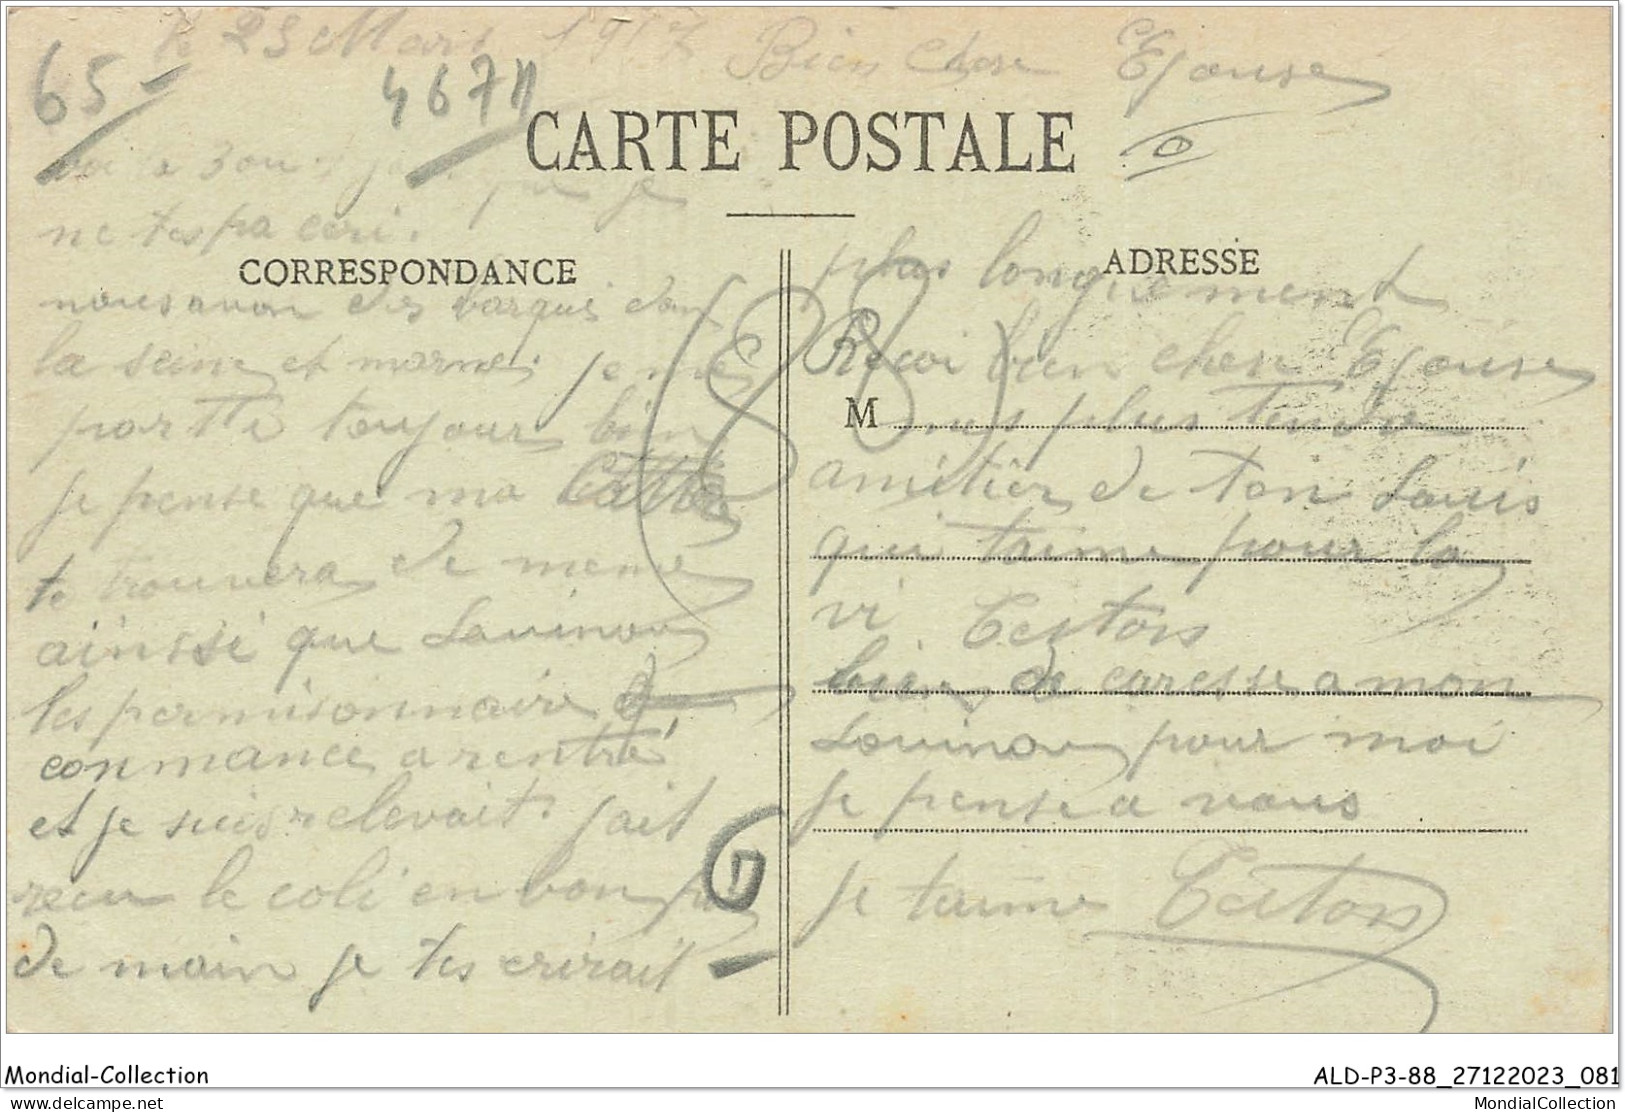 le 23 Mars 1917 Bien Chere Epouse
65-
4671
CARTE POSTALE
voila 3 ou 4 jour que je
ne tes pa ecri.
CORRESPONDANCE
nous avon des barques dans
la seine et marne. je me
portte toujour bien
je pense que ma Cattre
te trouvera de meme
ainssi que Louinou
les permisionnaire
conmance a rentré
et je suis relevait. jait
recu le coli en bon
de main je tes crirait
(88)
ADRESSE
plus longuement
Recoi bien chere Epouse
M
mes plus tendre
amitier de ton Louis
qui trime pour la
vi. Testors
bien de caresse a mon
Louinou pour moi
je pense a vous
je taime Testors
Mondial-Collection
ALD-P3-88_27122023_081
www.delcampe.net
MondialCollection